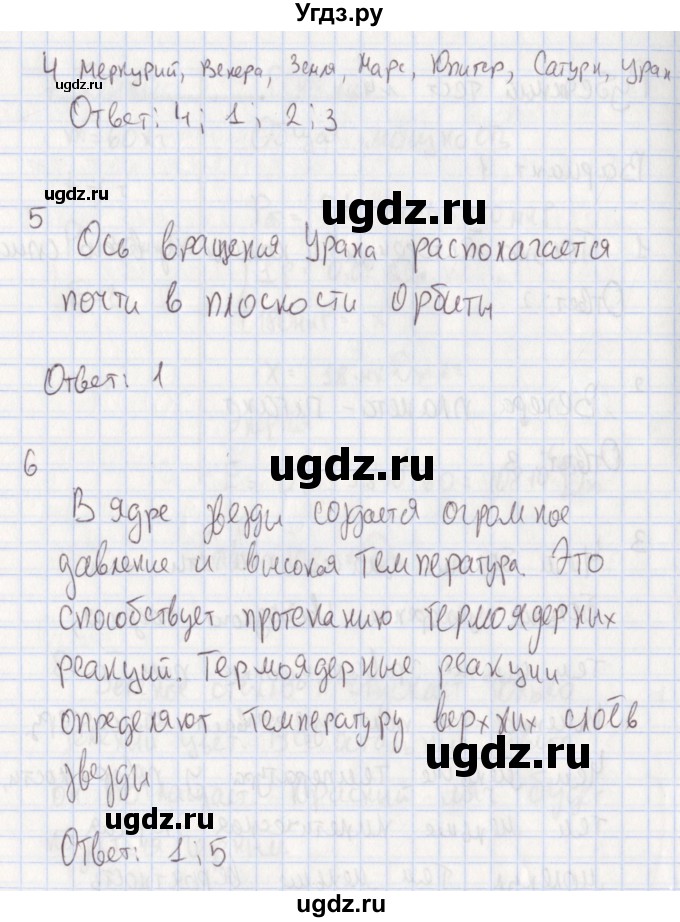 Угдз.ру
4 Меркурий, Венера, Земля, Марс, Юпитер, Сатурн, Уран
Ответ: 4; 1; 2; 3
ugdz.ru
5
ugdz.ru
Ось вращения Урана располагается
почти в плоскости орбиты
Ответ: 1
ugdz.ru
6
ugdz.ru
В ядре звезды создается огромное
давление и высокая температура. Это
способствует протеканию термоядерных
реакций. Термоядерные реакции
определяют температуру верхних слоёв
звезды
ugdz.ru
ugdz.ru
Ответ: 1; 5
ugdz.ru
ugdz.ru